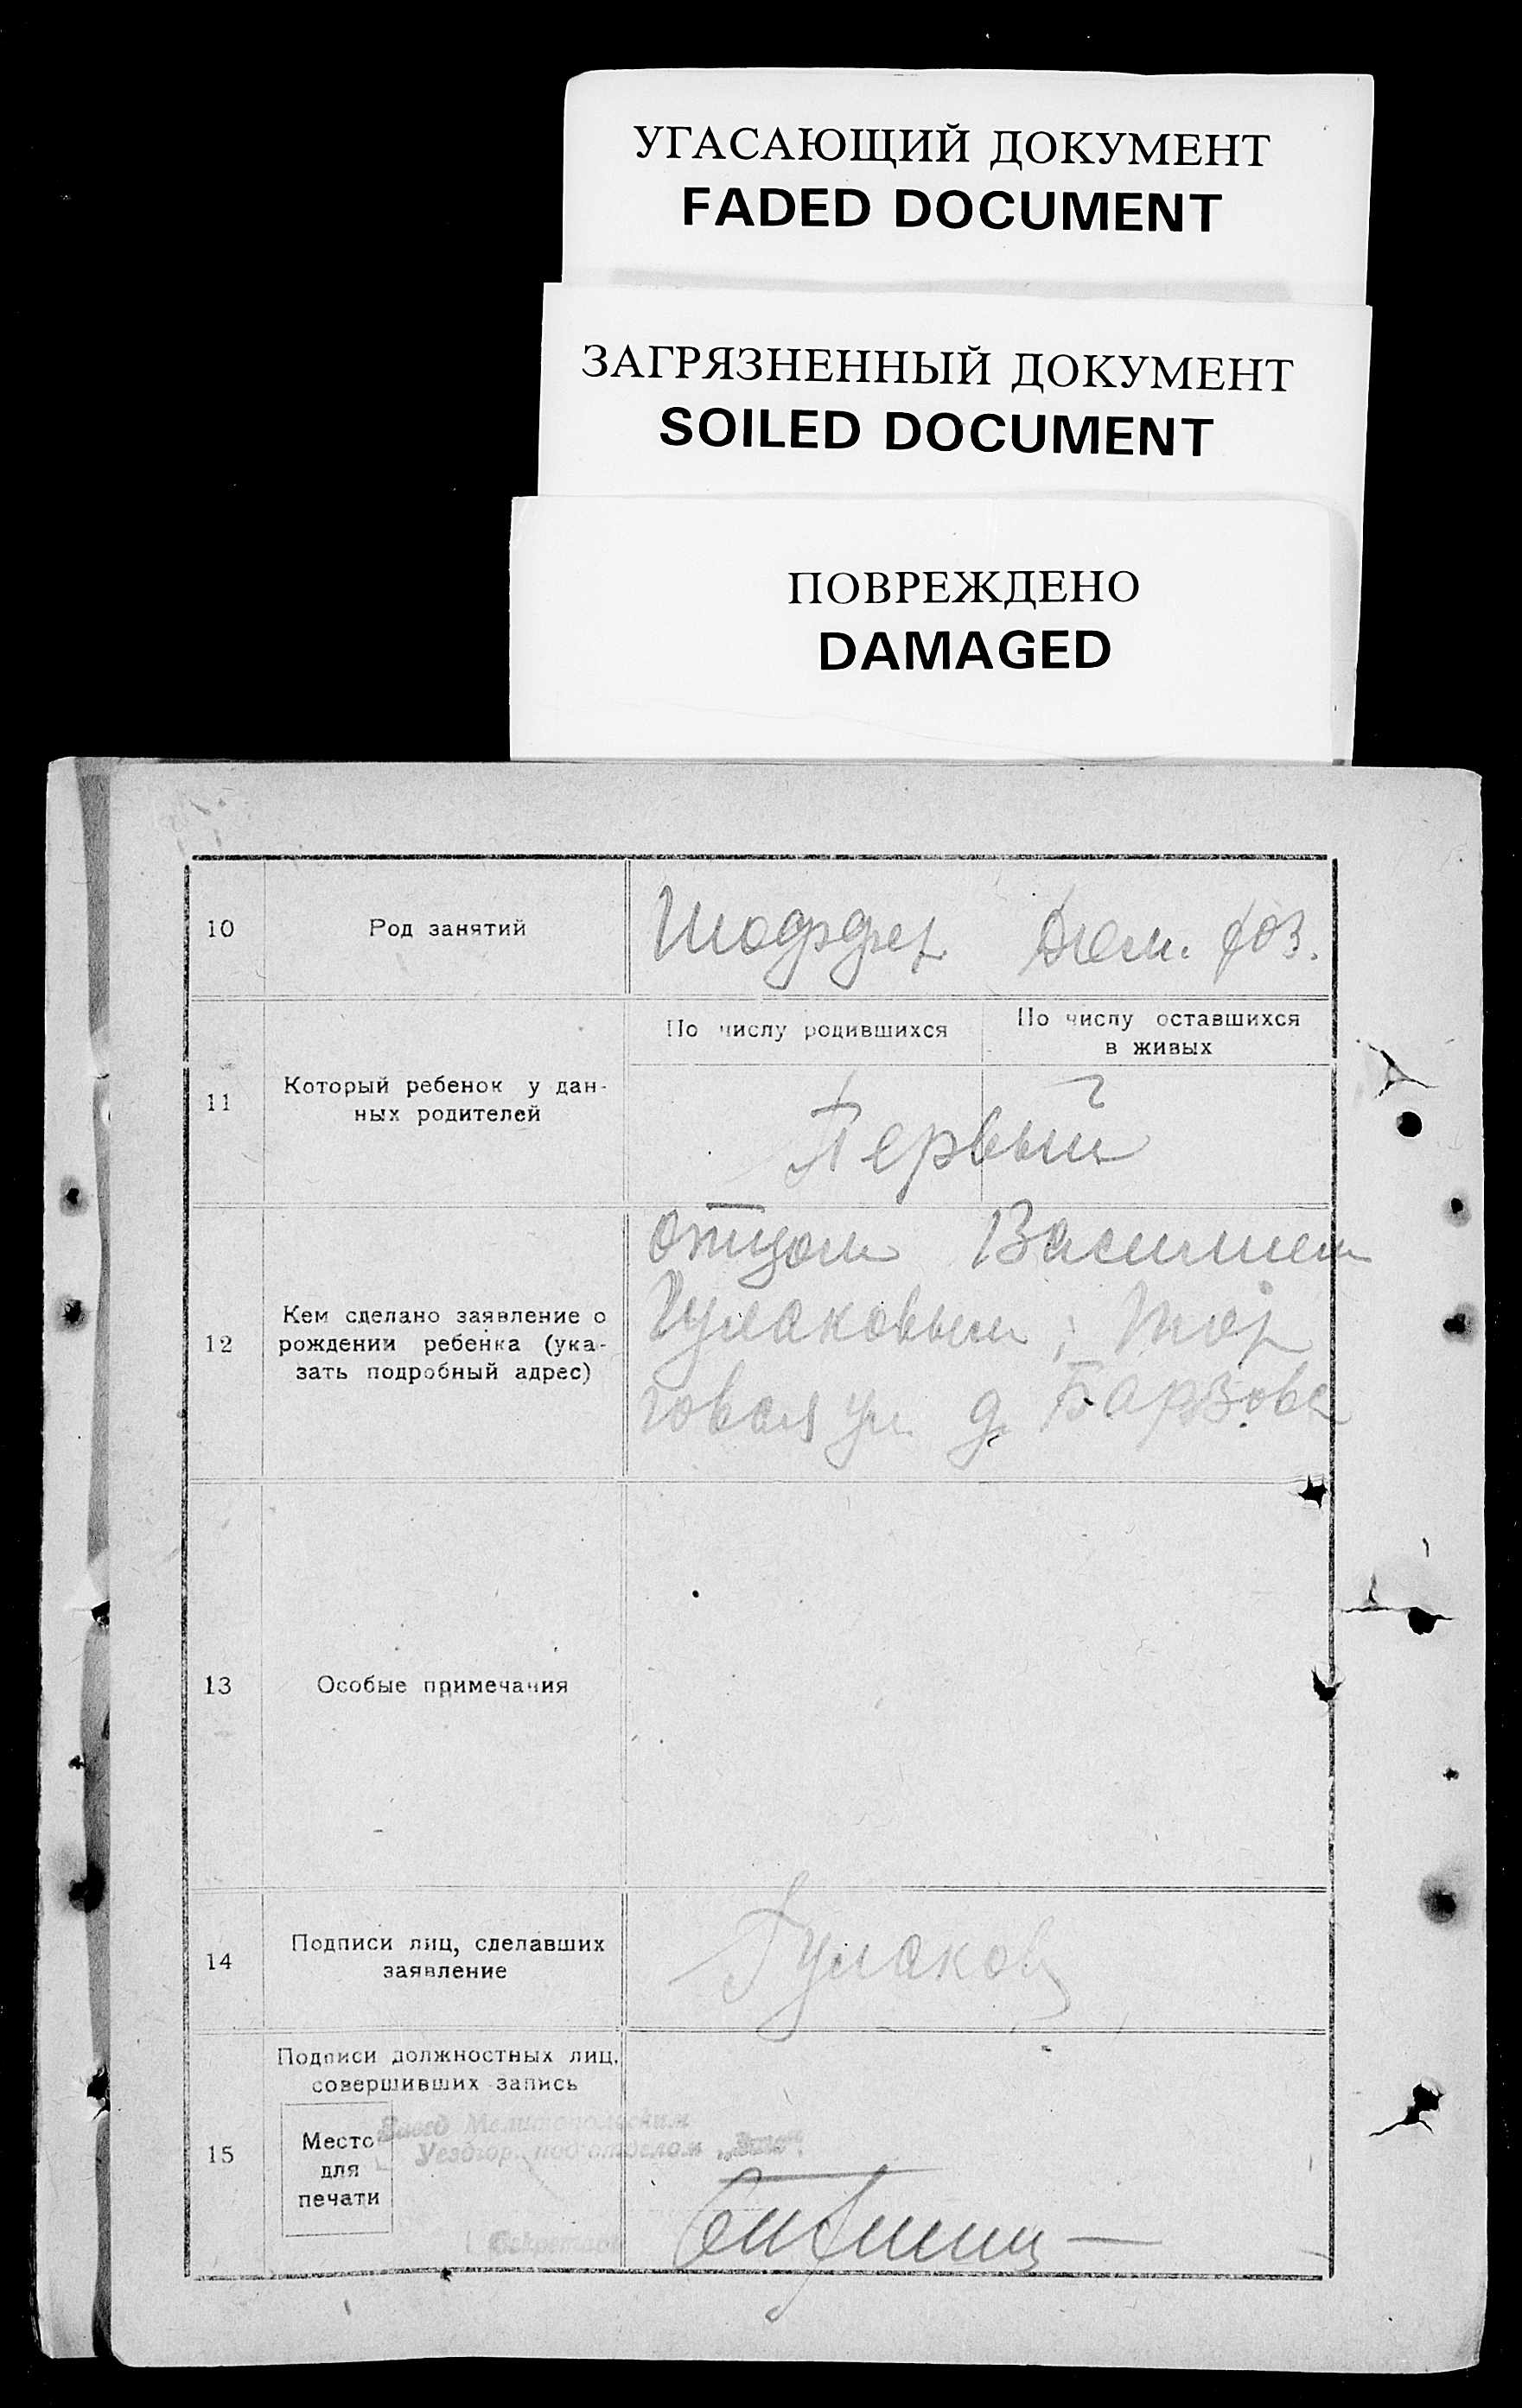 УГАСАЮЩИЙ ДОКУМЕНТ
FADED DOCUMENT
ЗАГРЯЗНЕННЫЙ ДОКУМЕНТ
SOILED DOCUMENT
ПОВРЕЖДЕНО
DAMAGED
10 Род занятий Шоффер
По числу родившихся
По числу оставшихся
в живых
11
Который ребенок у дан-
ных родителей
Первый
12
Кем сделано заявление о
рождении ребенка (ука-
зать подробный адрес)
отцом Василием
Гулаковым; Тор
говая ул. д.
13 Особые примечания
14
Подписи лиц, сделавших
заявление
Гулаков
15
Подписи должностных лиц,
совершивших запись
Место
для
печати
Завед Мелитопольским
Уездгор. подотделом
Секретарь